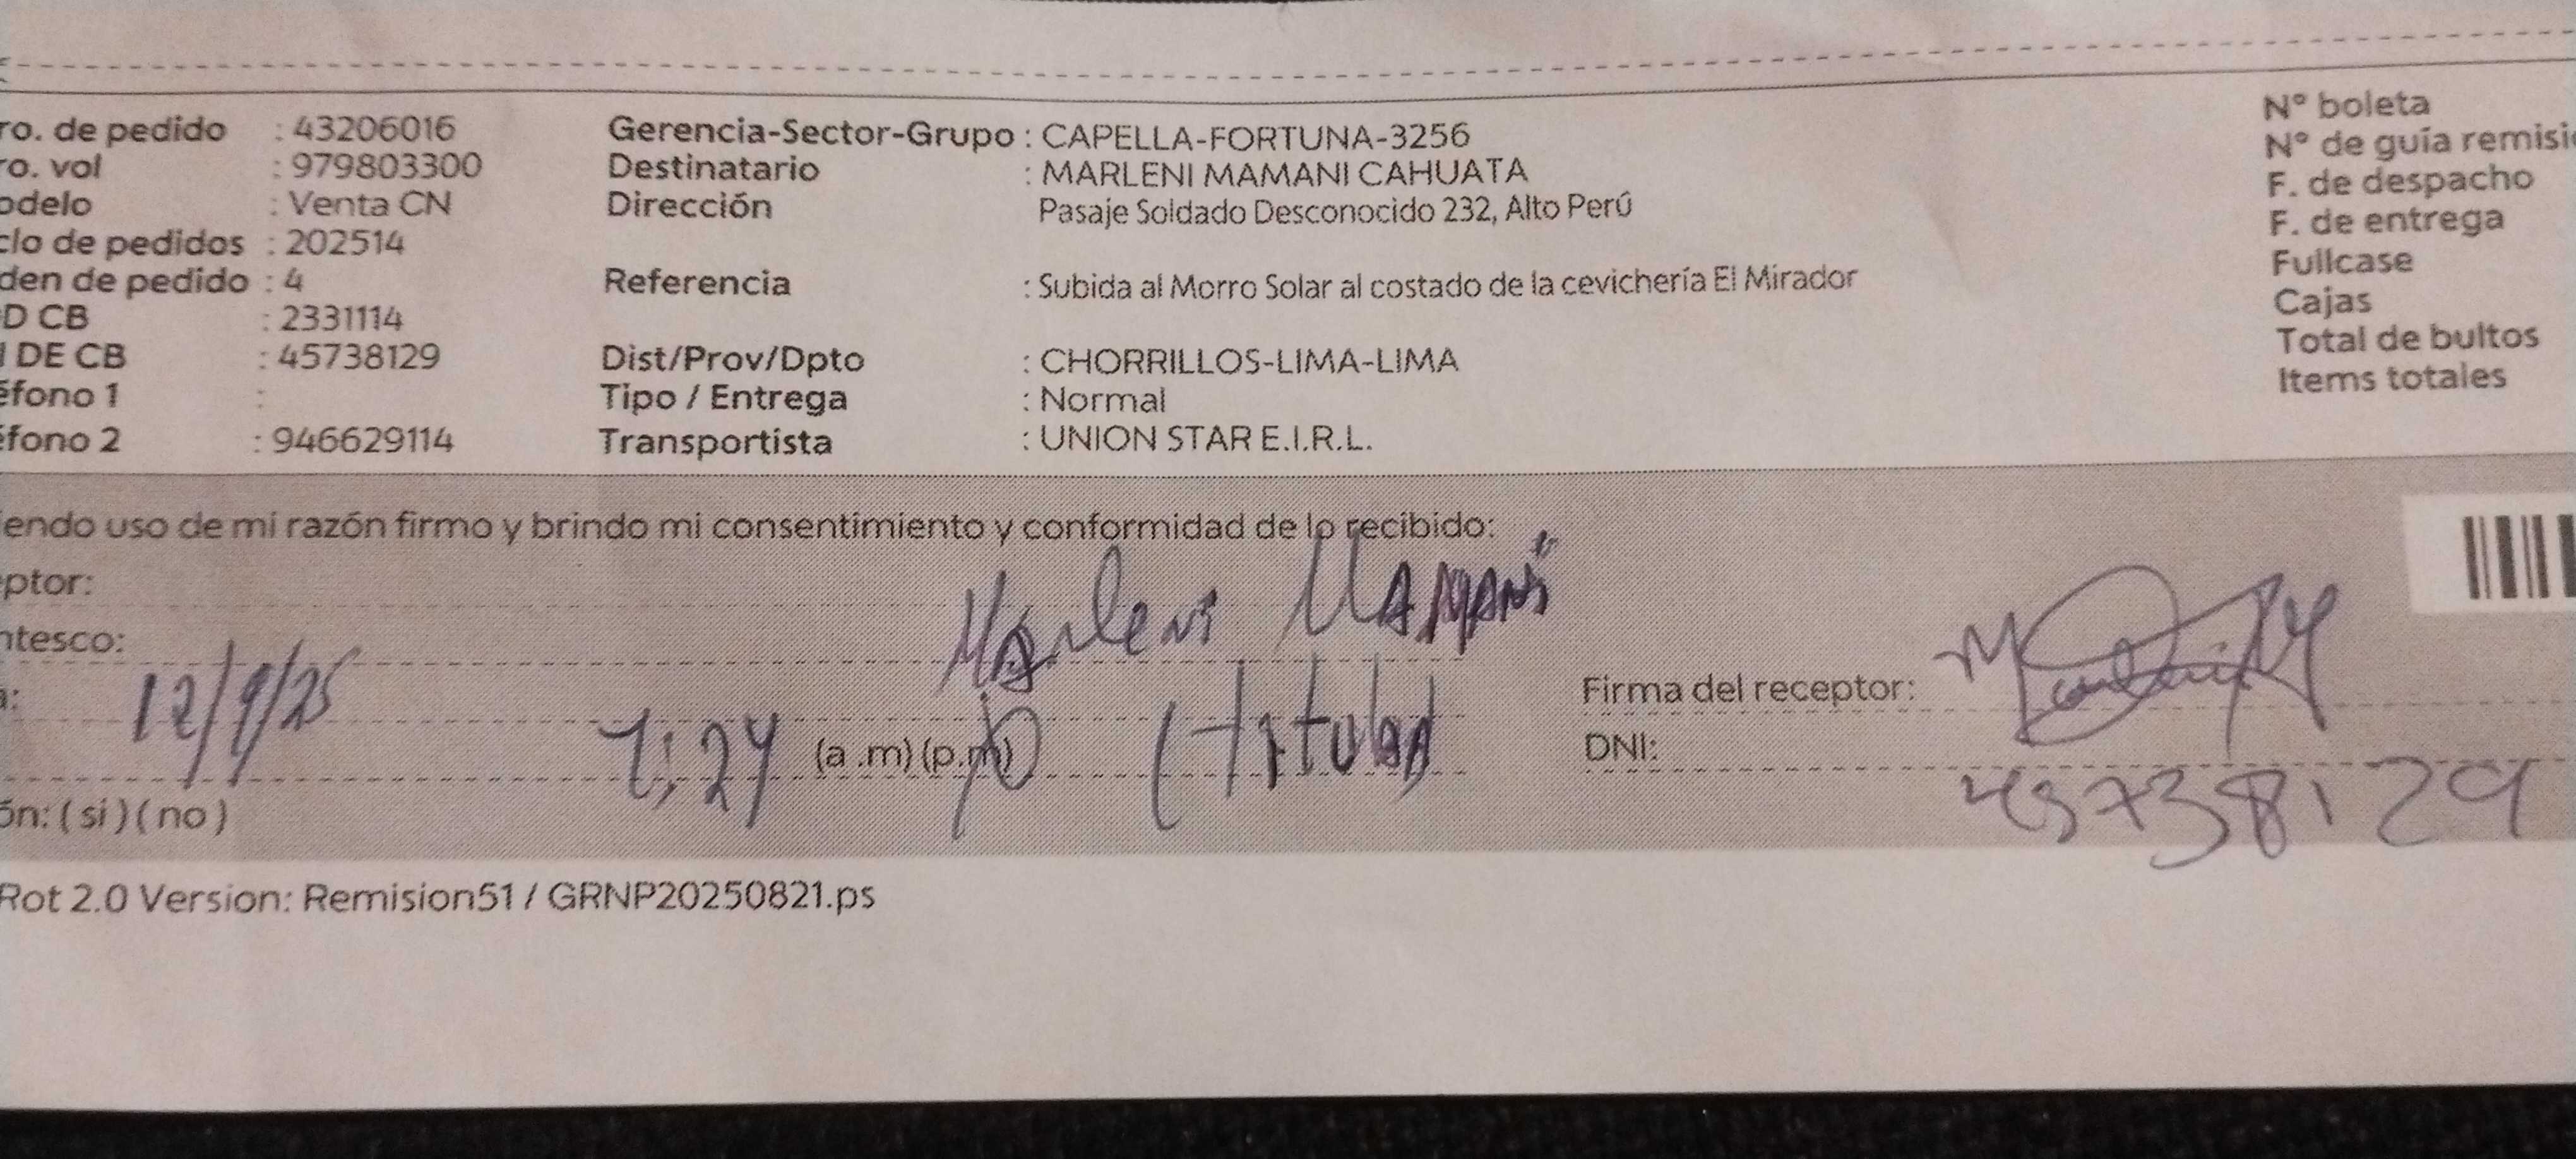 ro. de pedido : 43206016 Gerencia-Sector-Grupo : CAPELLA-FORTUNA-3256 N° boleta
ro. vol : 979803300 Destinatario : MARLENI MAMANI CAHUATA N° de guía remisi
odelo : Venta CN Dirección Pasaje Soldado Desconocido 232, Alto Perú F. de despacho
clo de pedidos : 202514 F. de entrega
den de pedido : 4 Referencia : Subida al Morro Solar al costado de la cevichería El Mirador Fullcase
D CB : 2331114 Cajas
I DE CB : 45738129 Dist/Prov/Dpto : CHORRILLOS-LIMA-LIMA Total de bultos
éfono 1 : Tipo / Entrega : Normal Items totales
éfono 2 : 946629114 Transportista : UNION STAR E.I.R.L.
iendo uso de mi razón firmo y brindo mi consentimiento y conformidad de lo recibido:
eptor: Marleni Mamani
ntesco:
a: 12/9/25 Firma del receptor:
(a .m) (p.m) (titular DNI: 45738129
ón: ( si ) ( no )
Rot 2.0 Version: Remision51 / GRNP20250821.ps